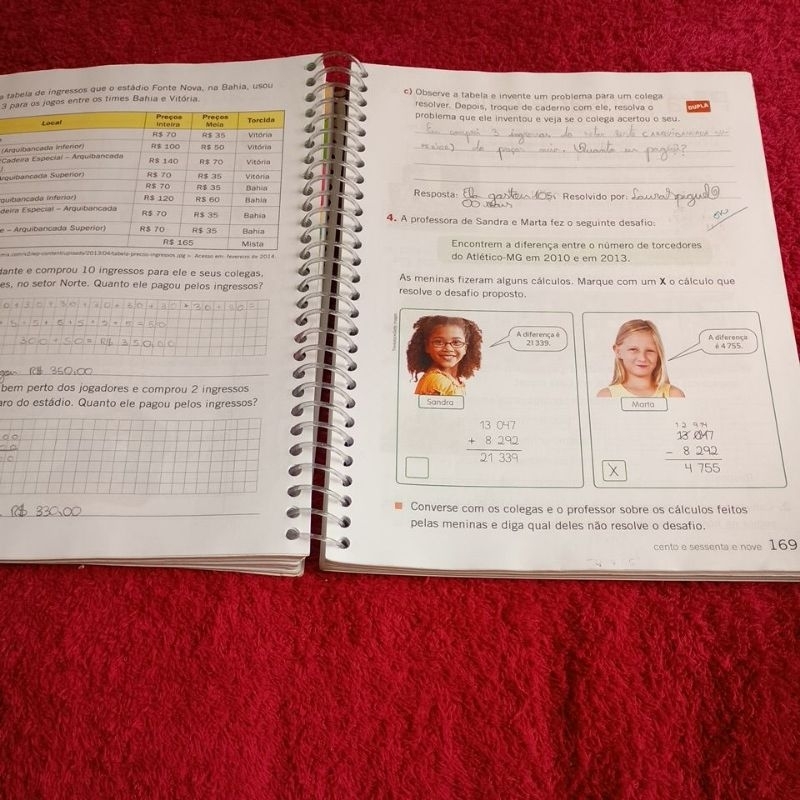 a tabela de ingressos que o estádio Fonte Nova, na Bahia, usou
3 para os jogos entre os times Bahia e Vitória.
Local Preços Inteira Preços Meia Torcida
R$ 70 R$ 35 Vitória
(Arquibancada Inferior) R$ 100 R$ 50 Vitória
(Cadeira Especial – Arquibancada R$ 140 R$ 70 Vitória
Arquibancada Superior) R$ 70 R$ 35 Vitória
R$ 70 R$ 35 Bahia
quibancada Inferior) R$ 120 R$ 60 Bahia
deira Especial – Arquibancada R$ 70 R$ 35 Bahia
e – Arquibancada Superior) R$ 70 R$ 35 Bahia
R$ 165 Mista
Acesso em: fevereiro de 2014.
dante e comprou 10 ingressos para ele e seus colegas,
es, no setor Norte. Quanto ele pagou pelos ingressos?
300 + 50 = R$ 350,00
R$ 350,00
bem perto dos jogadores e comprou 2 ingressos
aro do estádio. Quanto ele pagou pelos ingressos?
R$ 330,00
c) Observe a tabela e invente um problema para um colega
resolver. Depois, troque de caderno com ele, resolva o
problema que ele inventou e veja se o colega acertou o seu.
DUPLA
Eu comprei 3 ingressos do setor
Quanto eu paguei?
Resposta: Resolvido por:
4. A professora de Sandra e Marta fez o seguinte desafio:
Encontrem a diferença entre o número de torcedores
do Atlético-MG em 2010 e em 2013.
As meninas fizeram alguns cálculos. Marque com um X o cálculo que
resolve o desafio proposto.
A diferença é
21 339.
Sandra
13 047
+ 8 292
21 339
A diferença
é 4 755.
Marta
13 047
– 8 292
4 755
X
Converse com os colegas e o professor sobre os cálculos feitos
pelas meninas e diga qual deles não resolve o desafio.
cento e sessenta e nove 169